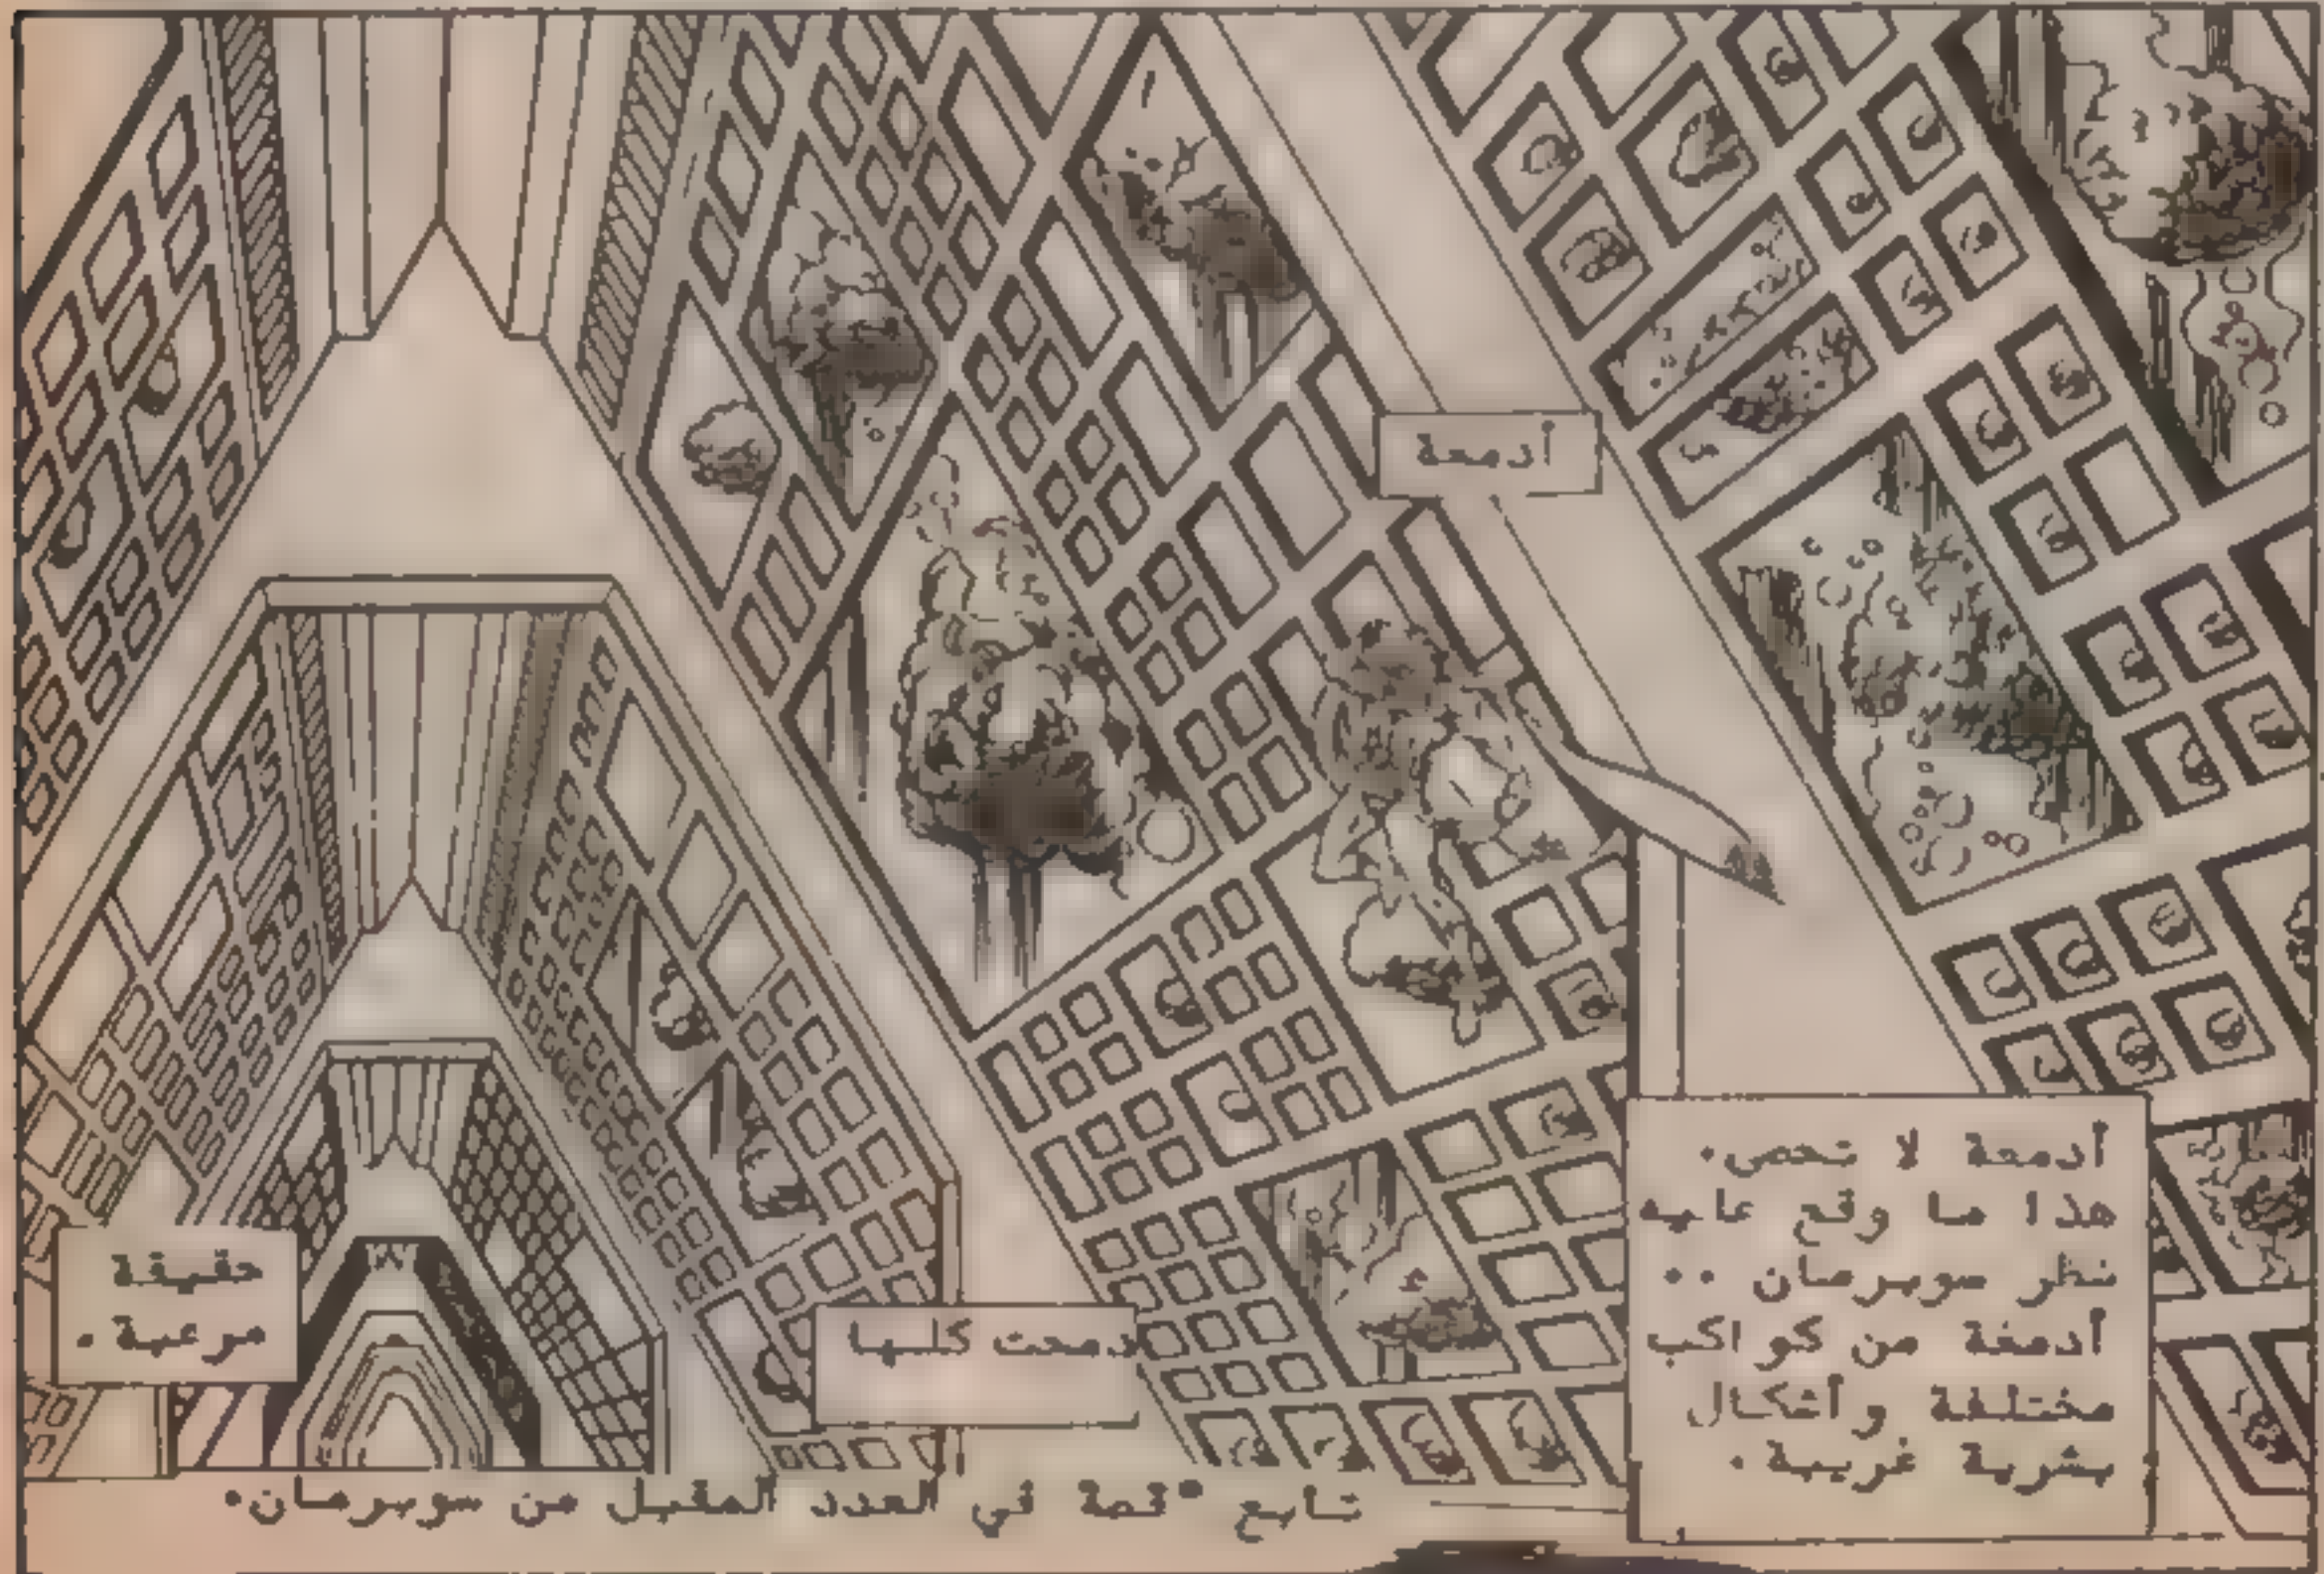 أدمعة
أدمعة لا تحصى.
هذا ما وقع عليه
نظر سوبرمان ..
أدمغة من كواكب
مختلفة وأشكال
بشرية غريبة.
دمحت كلها
حقيقة
مرعبة.
تابع قصة في العدد المقبل من سوبرمان.